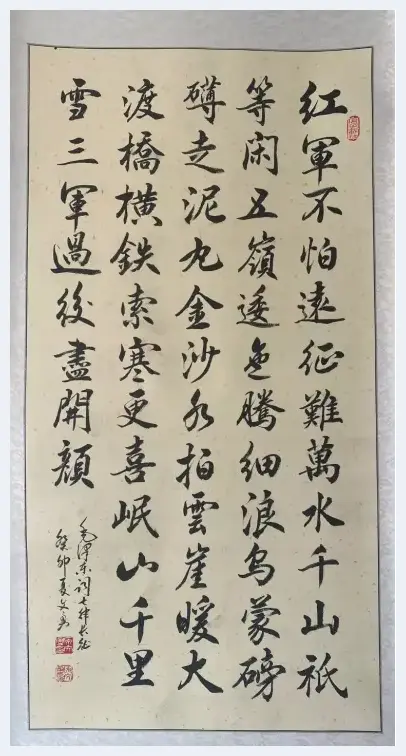 紅軍不怕遠征難萬水千山祇
等闲五嶺逶迤騰細浪烏蒙磅
礴走泥丸金沙水拍雲崖暖大
渡橋橫鉄索寒更喜岷山千里
雪三軍過後盡開顏
毛澤东詞七律長征
癸卯夏文